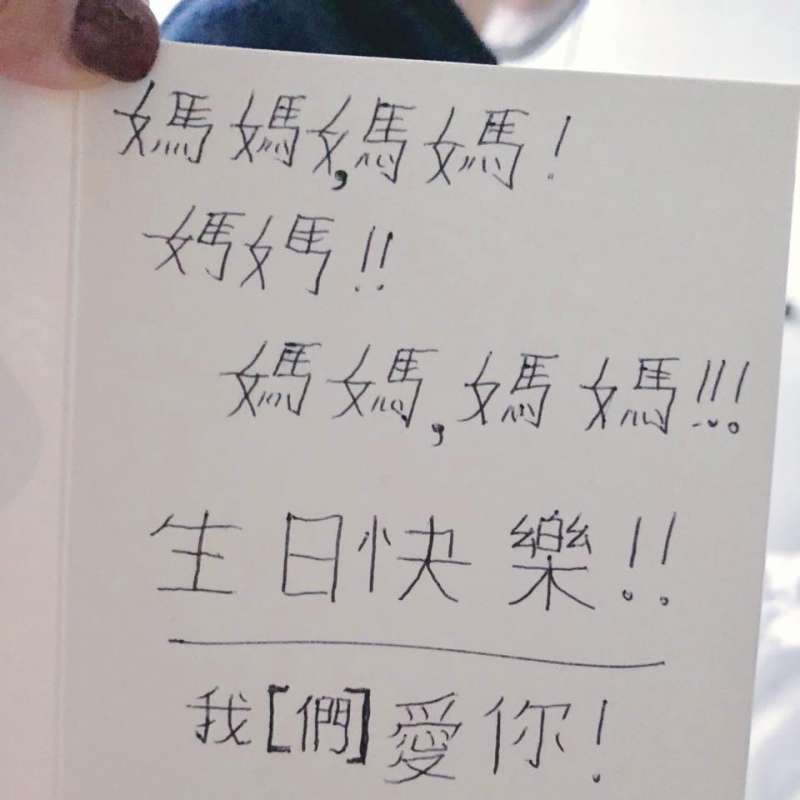 媽媽,媽媽!
媽媽!!
媽媽,媽媽!!!
生日快樂!!
我[們]愛你!